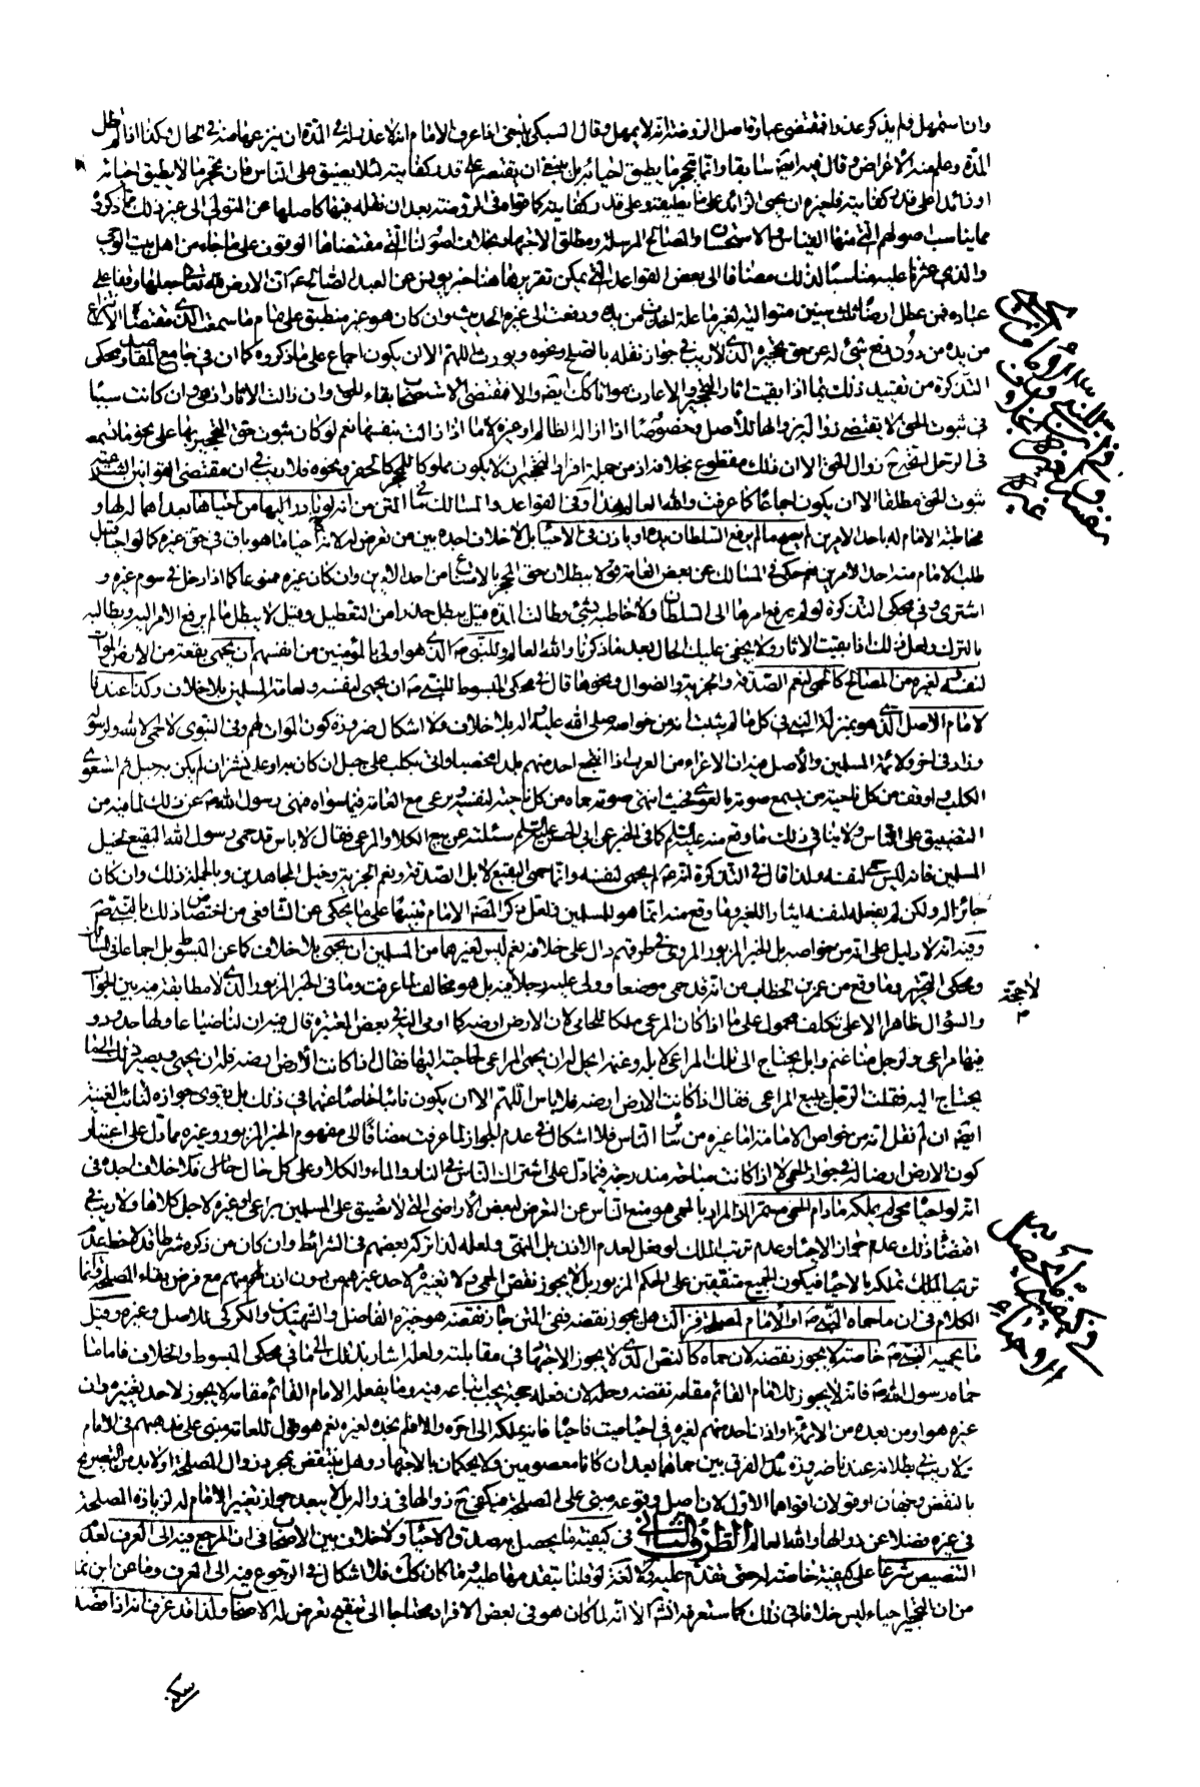 وان استمهل فلم يذكر عذرا فمقتضى عبارة فاضل الروضة انه لا يمهل وقال السبكى ينبغى اذا عرف الامام انه لا عذر له في المدة ان ينزعها منه في الحال وكذا اذا لم تطل
المدة وعلم منه الاعراض وقال فيه ايضا سابقا وانما يتحجر ما يطيق احيائه بل ينبغي ان يقتصر على قدر كفايته لئلا يضيق على الناس فان تحجر ما لا يطيق احيائه
او زائدا على قدر كفايته فلغيره ان يحيى الزائد على ما يطيقه وعلى قدر كفايته كما قواه في الروضة بعد ان نقله فيها كاصلها عن المتولى الى غير ذلك مما ذكروه
مما يناسب اصولهم التي منها القياس والاستحسان والمصالح المرسلة ومطلق الاجتهاد بخلاف اصولنا التي مقتضاها الوقوف على ما جاء من اهل بيت الوحى
والذي عثرنا عليه مناسبا لذلك مضافا الى بعض القواعد التي يمكن تقريرها هنا خبر يونس عن العبد الصالح ع ان الارض لله تعالى جعلها وقفا على
عباده فمن عطل ارضا ثلث سنين متوالية لغير ما علة اخذت من يده ودفعت الى غيره الحديث وان كان هو غير منطبق على تمام ما سمعت الذي مقتضاه الانتزاع
من يده من دون دفع شيء له عن حق تحجيره الذي لا ريب في جواز نقله بالصلح ونحوه ويورث اللهم الا ان يكون اجماع على ما ذكروه كما ان في جامع المقاصد ومحكى
التذكرة من تقييد ذلك بما اذا بقيت اثار التحجير والا عادت مواتا كك ايضا والا فمقتضى الاستصحاب بقاء الحق وان زالت الاثار اذ هي وان كانت سببا
في ثبوت الحق لا يقتضي زوالها زواله للاصل وخصوصا اذا ازاله الظالم او غيره لا ما اذا زالت بنفسها نعم لو كان ثبوت حق التحجير بها على نحو ما تسمعه
في الرحل اتجه ح زوال الحق الا ان ذلك مقطوع بخلافه اذ من جملة افراد التحجير ان لا يكون مملوكا للمحجر كالحفر ونحوه فلا ريب في ان مقتضى القواعد الشرعية
ثبوت الحق مطلقا الا ان يكون اجماعا كما عرفت والله العالم وهذا وفى القواعد والمسالك نحو ما في المتن من انه لو بادر اليها من احياها بعد اهماله لها و
مخاطبة الامام له باحد الامرين لم يصح ما لم يرفع السلطان يده او ياذن في الاحياء بل لا خلاف اجده بين من تعرض له لانه احيا ما هو باق في حق غيره كما لو احيا قبل
طلب الامام منه احد الامرين نعم حكى في المسالك عن بعض العامة قولا ببطلان حق المحجر بالامتناع من احد الامرين وان كان غيره ممنوعا كما اذا دخل في سوم غيره و
اشترى وفي محكى التذكرة لو لم يرفع امرها الى السلطان ولا خاطبه بشيء وطالت المدة قيل يبطل حذرا من التعطيل وقيل لا يبطل ما لم يرفع الامر اليه ويطالبه
بالترك ولعل ذلك اذا بقيت الاثار ولا يخفى عليك الحال بعد ما ذكرنا والله العالم وللنبى ص الذي هو اولى بالمؤمنين من انفسهم ان يحمى بقعة من الارض الموات
لنفسه ولغيره من المصالح كالحمى لنعم الصدقة والجزية والضوال ونحوها قال في محكى المبسوط للنبي ص ان يحمى لنفسه ولعامة المسلمين بلا خلاف وكذا عندنا
لامام الاصل الذي هو بمنزلة النبي في كل ما لم يثبت انه من خواصه صلى الله عليه واله بلا خلاف ولا اشكال ضرورة كون الموات لهم وفى النبوى لا حمى الا لله ولرسوله
وزاد في اخر ولائمة المسلمين والاصل فيه ان الاعزاء من العرب اذا انتجع احد منهم بلدا مخصبا وافى بكلب على جبل ان كان به او على نشز ان لم يكن به جبل ثم استعوى
الكلب واوقف من كل ناحية من يسمع صوته بالعوى فحيث انتهى صوته حماه من كل ناحية لنفسه ويرعى مع العامة فيما سواه فنهى رسول الله ص عن ذلك لما فيه من
التضييق على الناس ولا ينافى ذلك ما وقع منه عليه السلام كما في الخبر عن ابى الحسن عليه السلم سئلته عن بيع الكلاء والمرعى فقال لا باس قد حمى رسول الله البقيع لخيل
المسلمين فانه ليس حمى لنفسه ولذا قال في التذكرة انه ص لم يحمى لنفسه وانما حمى البقيع لابل الصدقة ونعم الجزية وخيل المجاهدين وبالجملة ذلك وان كان
جائزا له ولكن لم يفعله لنفسه ايثارا للغير وما وقع منه انما هو للمسلمين فلعل ذكر المصنف الامام تنبيها على ما يحكى عن الشافعى من اختصاص ذلك بالنبى ص
وفيه انه لا دليل على انه من خواصه بل الخبر المزبور المروى في طرقهم دال على خلافه نعم ليس لغيرهما من المسلمين ان يحمى بلا خلاف كما عن المبسوط بل اجماعا في المسالك
ومحكى التحرير وما وقع من عمر بن الخطاب من انه قد حمى موضعا وولى عليه رجلا فيه بل هو مخالف لما عرفت وما في الخبر المزبور الذي لا مطابقة فيه بين الجواب
والسؤال ظاهرا الا على تكلف محمول على ما اذا كان المرعى ملكا للحامى لان الارض ارضه كما اومى اليه في بعض المعتبرة قال فيه ان لنا ضياعا ولها حدود و
فيها مراعى ولرجل منا غنم وابل يحتاج الى تلك المراعى لابله وغنمه ايحل له ان يحمى المراعى لحاجته اليها فقال اذا كانت الارض ارضه فله ان يحمى ويصير ذلك الى ما
يحتاج اليه فقلت الرجل يبيع المراعى فقال اذا كانت الارض ارضه فلا باس اللهم الا ان يكون نائبا خاصا عنهما في ذلك بل يقوى جوازه لنائب الغيبة
ايضا ان لم نقل انه من خواص الامامة اما غيره من سائر الناس فلا اشكال في عدم الجواز لما عرفت مضافا الى مفهوم الخبر المزبور وغيره مما دل على اعتبار
كون الارض ارضا له في جواز الحمى لا اذا كانت مباحة مندرجة فيما دل على اشتراك الناس في النار والماء والكلاء وعلى كل حال فلا خلاف اجده في
انه لو احيا محى لم يملكه ما دام الحمى مستمرا اذ المراد بالحمى هو منع الناس عن التعرض لبعض الاراضى التي لا تضيق على المسلمين برعى او غيره لاجل كلاءها ولا ريب في
اقتضاء ذلك عدم جواز الاحياء وعدم ترتب الملك لو فعل لعدم الاذن بل المنع ولعله لذا تركه بعضهم في الشرائط وان كان من ذكره شرطا قد لاحظ عدم
ترتب الملك تملكه بالاحياء فيكون الجميع متفقين على الحكم المزبور بل لا يجوز نقض الحمى ولا تغييره لاحد غيرهم من دون اذنهم مع فرض بقاء المصلحة وانما
الكلام في ان ما حماه النبى ص او الامام لمصلحة فزالت هل يجوز نقضه ففى المتن جاز نقضه وهو خيرة الفاضل والشهيدين والكركى للاصل وغيره وقيل
ما يحميه النبى ص خاصة لا يجوز نقضه لان حماه كالنص الذي لا يجوز الاجتهاد في مقابلته ولعله اشار بذلك الى ما في محكى المبسوط والخلاف فاما ما
حماه رسول الله ص فانه لا يجوز للامام القائم مقامه نقضه وحله لان فعله حجة يجب اتباعه فيه وما يفعله الامام القائم مقامه لا يجوز لاحد تغييره وان
غيره هو او من بعده من الائمة او اذن احد منهم لغيره في احياء ميت فاحيا فانه يملكه الى اخره والاقلم نجده لغيره نعم هو قول للعامة مبنى على مذهبهم في الامام
لا ريب في بطلانه عندنا ضرورة عدم الفرق بين حماهما بعد ان كانا معصومين ولا يحكمان بالاجتهاد وهل ينتقض بمجرد زوال المصلحة او لا بد من التصريح
بالنقض وجهان او قولان اقواهما الاول لان اصل وقوعه مبنى على المصلحة فيكفى ح زوالها في زواله بل لا يبعد جواز تغيير الامام له لزيادة المصلحة
في غيره فضلا عن زوالها والله العالم الطرف الثاني في كيفية ما يحصل به صدق الاحياء ولا خلاف بين الاصحاب في ان المرجع فيه الى العرف لعدم
التنصيص شرعا على كيفية خاصة له حتى تقدم عليه ولا لغة لو قلنا بتقدمها عليه وما كان كك فلا اشكال في الرجوع فيه الى العرف وما عن ابن نما
من ان التحجير احياء ليس خلافا في ذلك كما ستعرفه انشاء الله الا انه لما كان هو في بعض الافراد محتاجا الى تنقيح تعرض له الاصحاب ولذا قد عرف انه اذا قصد
سكنى